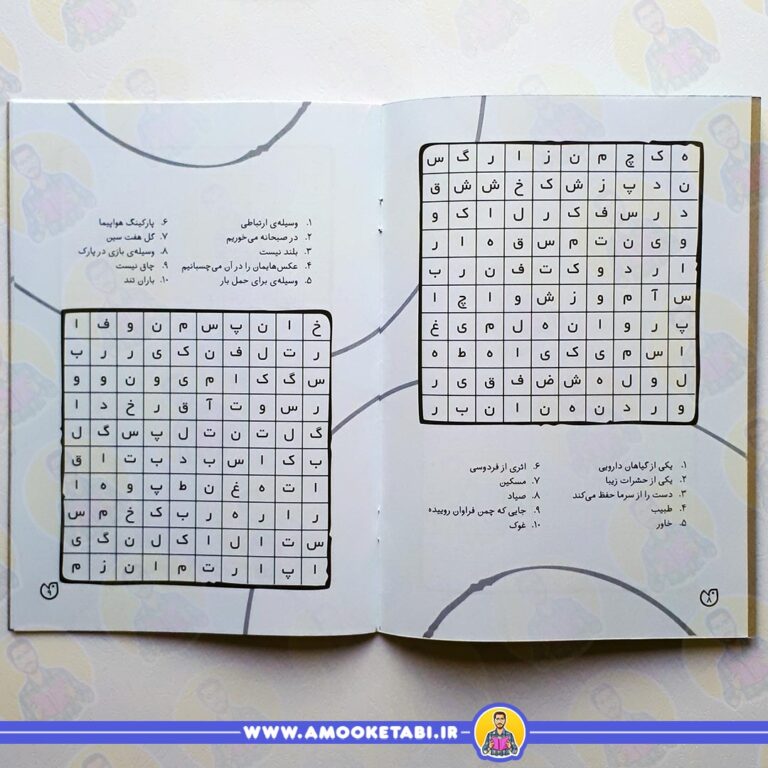 ه ک چ م ن ز ا ر گ س
ن د پ ز ش ک خ ش ش ق
د ر س ف ک ر ل ا ک و
و ی ن ت م س ق ه ا ر
ا ر د و ک ت ف ن ر ب
س آ م و ز ش و ا چ ا
پ ر و ا ن ه ل م ی غ
ا س م ی ک ی ا ه ط ه
ل و ل ه ش ض ف ق ی ر
و ر د ن ه ن ا ن ب ر
۱. یکی از گیاهان دارویی
۲. یکی از حشرات زیبا
۳. دست را از سرما حفظ می‌کند
۴. طبیب
۵. خاور
۶. اثری از فردوسی
۷. مسکین
۸. صیاد
۹. جایی که چمن فراوان روییده
۱۰. غوک
۸
۱. وسیله‌ی ارتباطی
۲. در صبحانه می‌خوریم
۳. بلند نیست
۴. عکس‌هایمان را در آن می‌چسبانیم
۵. وسیله‌ی برای حمل بار
۶. پارکینگ هواپیما
۷. گل هفت سین
۸. وسیله‌ی بازی در پارک
۹. چاق نیست
۱۰. باران تند
خ ا ن پ س م ن و ف ا
ر ت ل ف ن ک ی ر ر ب
س گ ک ا م ی و ن و و
ر س و ت آ ق ر خ د ا
گ ل ت ن ت ل پ س گ ل
ب ک ا س ب د ب ت ا ق
ا ت ه غ ن ط پ و ه ا
ر ا ر ه ر ب ک خ م س
س ت ا ل ا ک ل ن گ ی
ا پ ا ر ت م ا ن ز م
۹
WWW.AMOOKETABI.IR